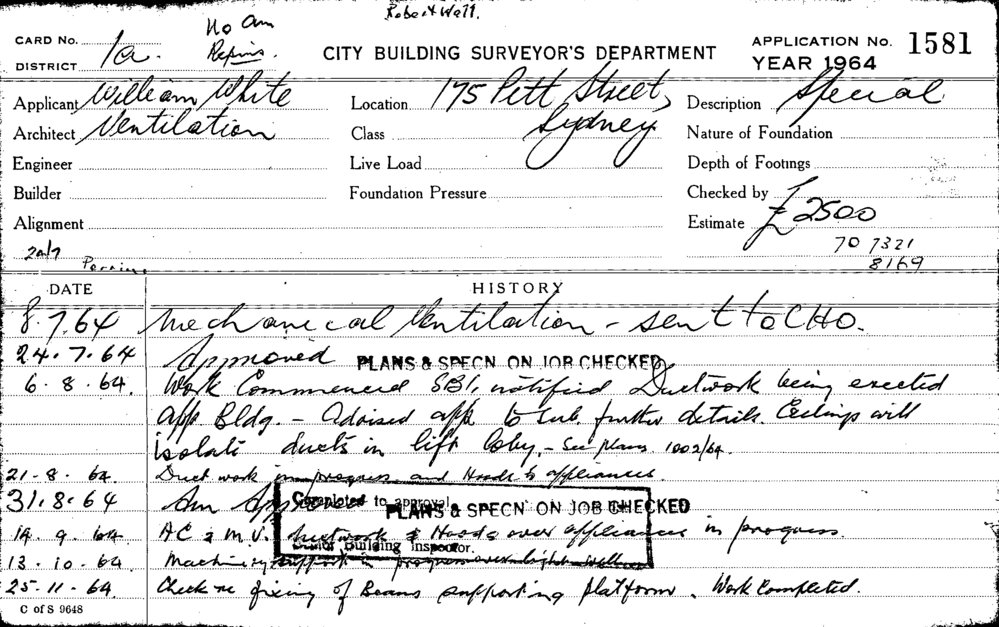 Robert Wall.
No Am
Repins.
CARD No. 1a.
DISTRICT
CITY BUILDING SURVEYOR'S DEPARTMENT
APPLICATION No. 1581
YEAR 1964
Applicant William White
Location 175 Pitt Street,
Description Special
Architect Ventilation
Class Sydney
Nature of Foundation
Engineer
Live Load
Depth of Footings
Builder
Foundation Pressure
Checked by
Alignment
Estimate £2500
20/7
70 7321
Perrin
8169
DATE HISTORY
8.7.64 Mechanical Ventilation - sent to CHO.
24.7.64 Approved PLANS & SPECN ON JOB CHECKED
6.8.64. Work Commenced SBI, notified Ductwork being erected
app. Bldg. - Advised app. to sub. further details. Ceilings will
isolate ducts in lift loby, - See plans 1002/64.
21-8-64. Duct work in progress and Hoods to appliances
31.8.64 Am Approved PLANS & SPECN ON JOB CHECKED
Completed to approval
14.9.64. AC & M.V. Ductwork & Hoods over appliances in progress.
Building Inspector.
13.10.64 Machinery support in progress over light well
25.11.64. Check re fixing of Beams supporting platform. Work Completed.
C of S 9648